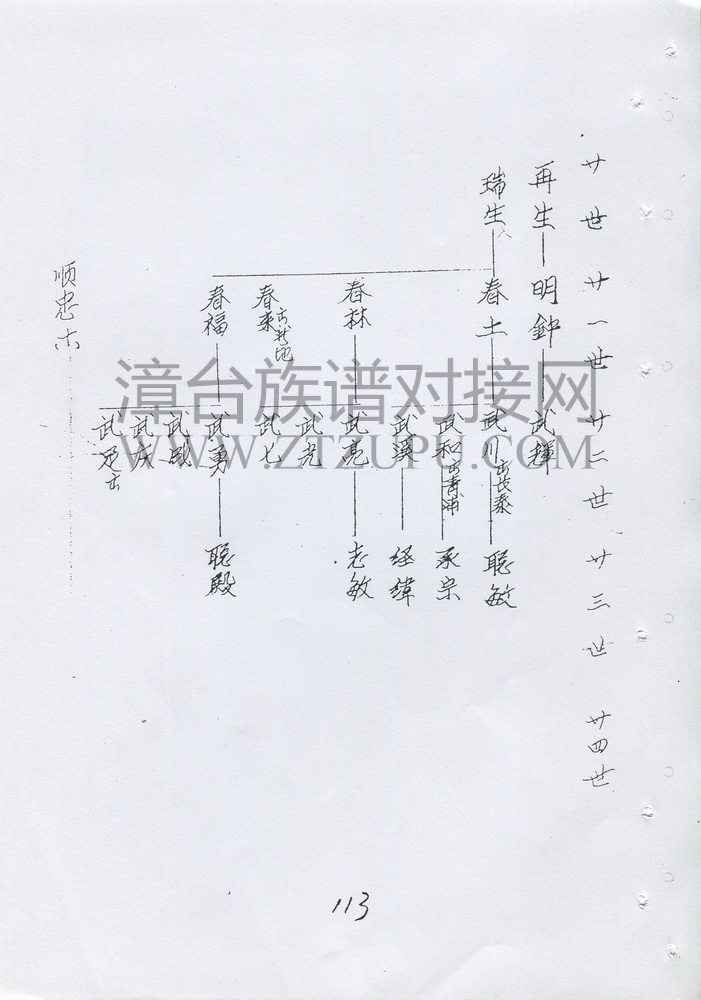 廿世 廿一世 廿二世 廿三世 廿四世
再生 明鐘 武輝
瑞生
春土 武川 聪敏
武和 承宗
武溪 经緯
春林 武亮 志敏
武光
春来
武七
春福 武勇 聪殿
武
武庆
武
顺忠
漳台族谱对接网
WWW.ZTZUPU.COM
113